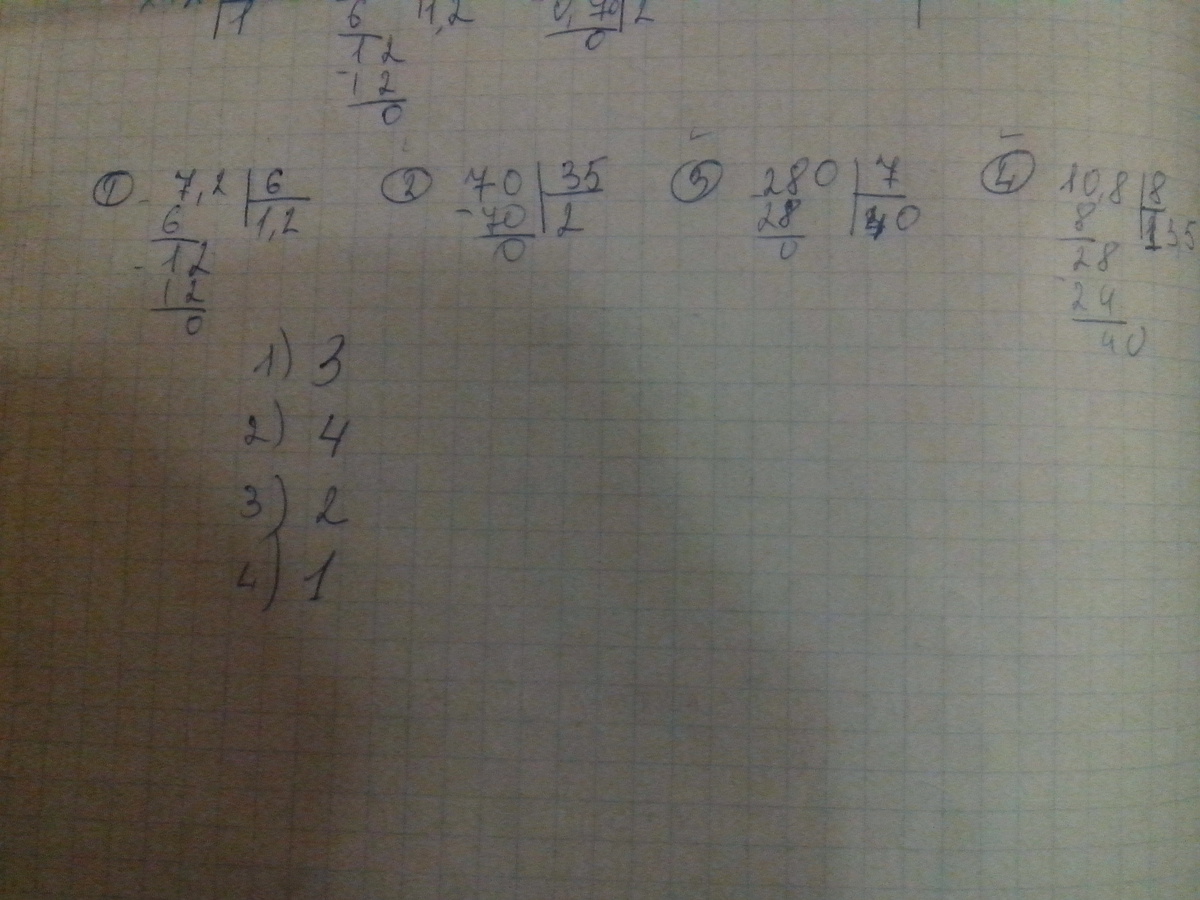 1 6 1,2 0,70 2
12 0
12
0
① 7,2 6 ② 70 35 ③ 280 7 ④ 10,8 8
6 1,2 -70 2 28 40 8 1,35
- 12 0 0 28
12 - 24
0 40
1) 3
2) 4
3) 2
4) 1